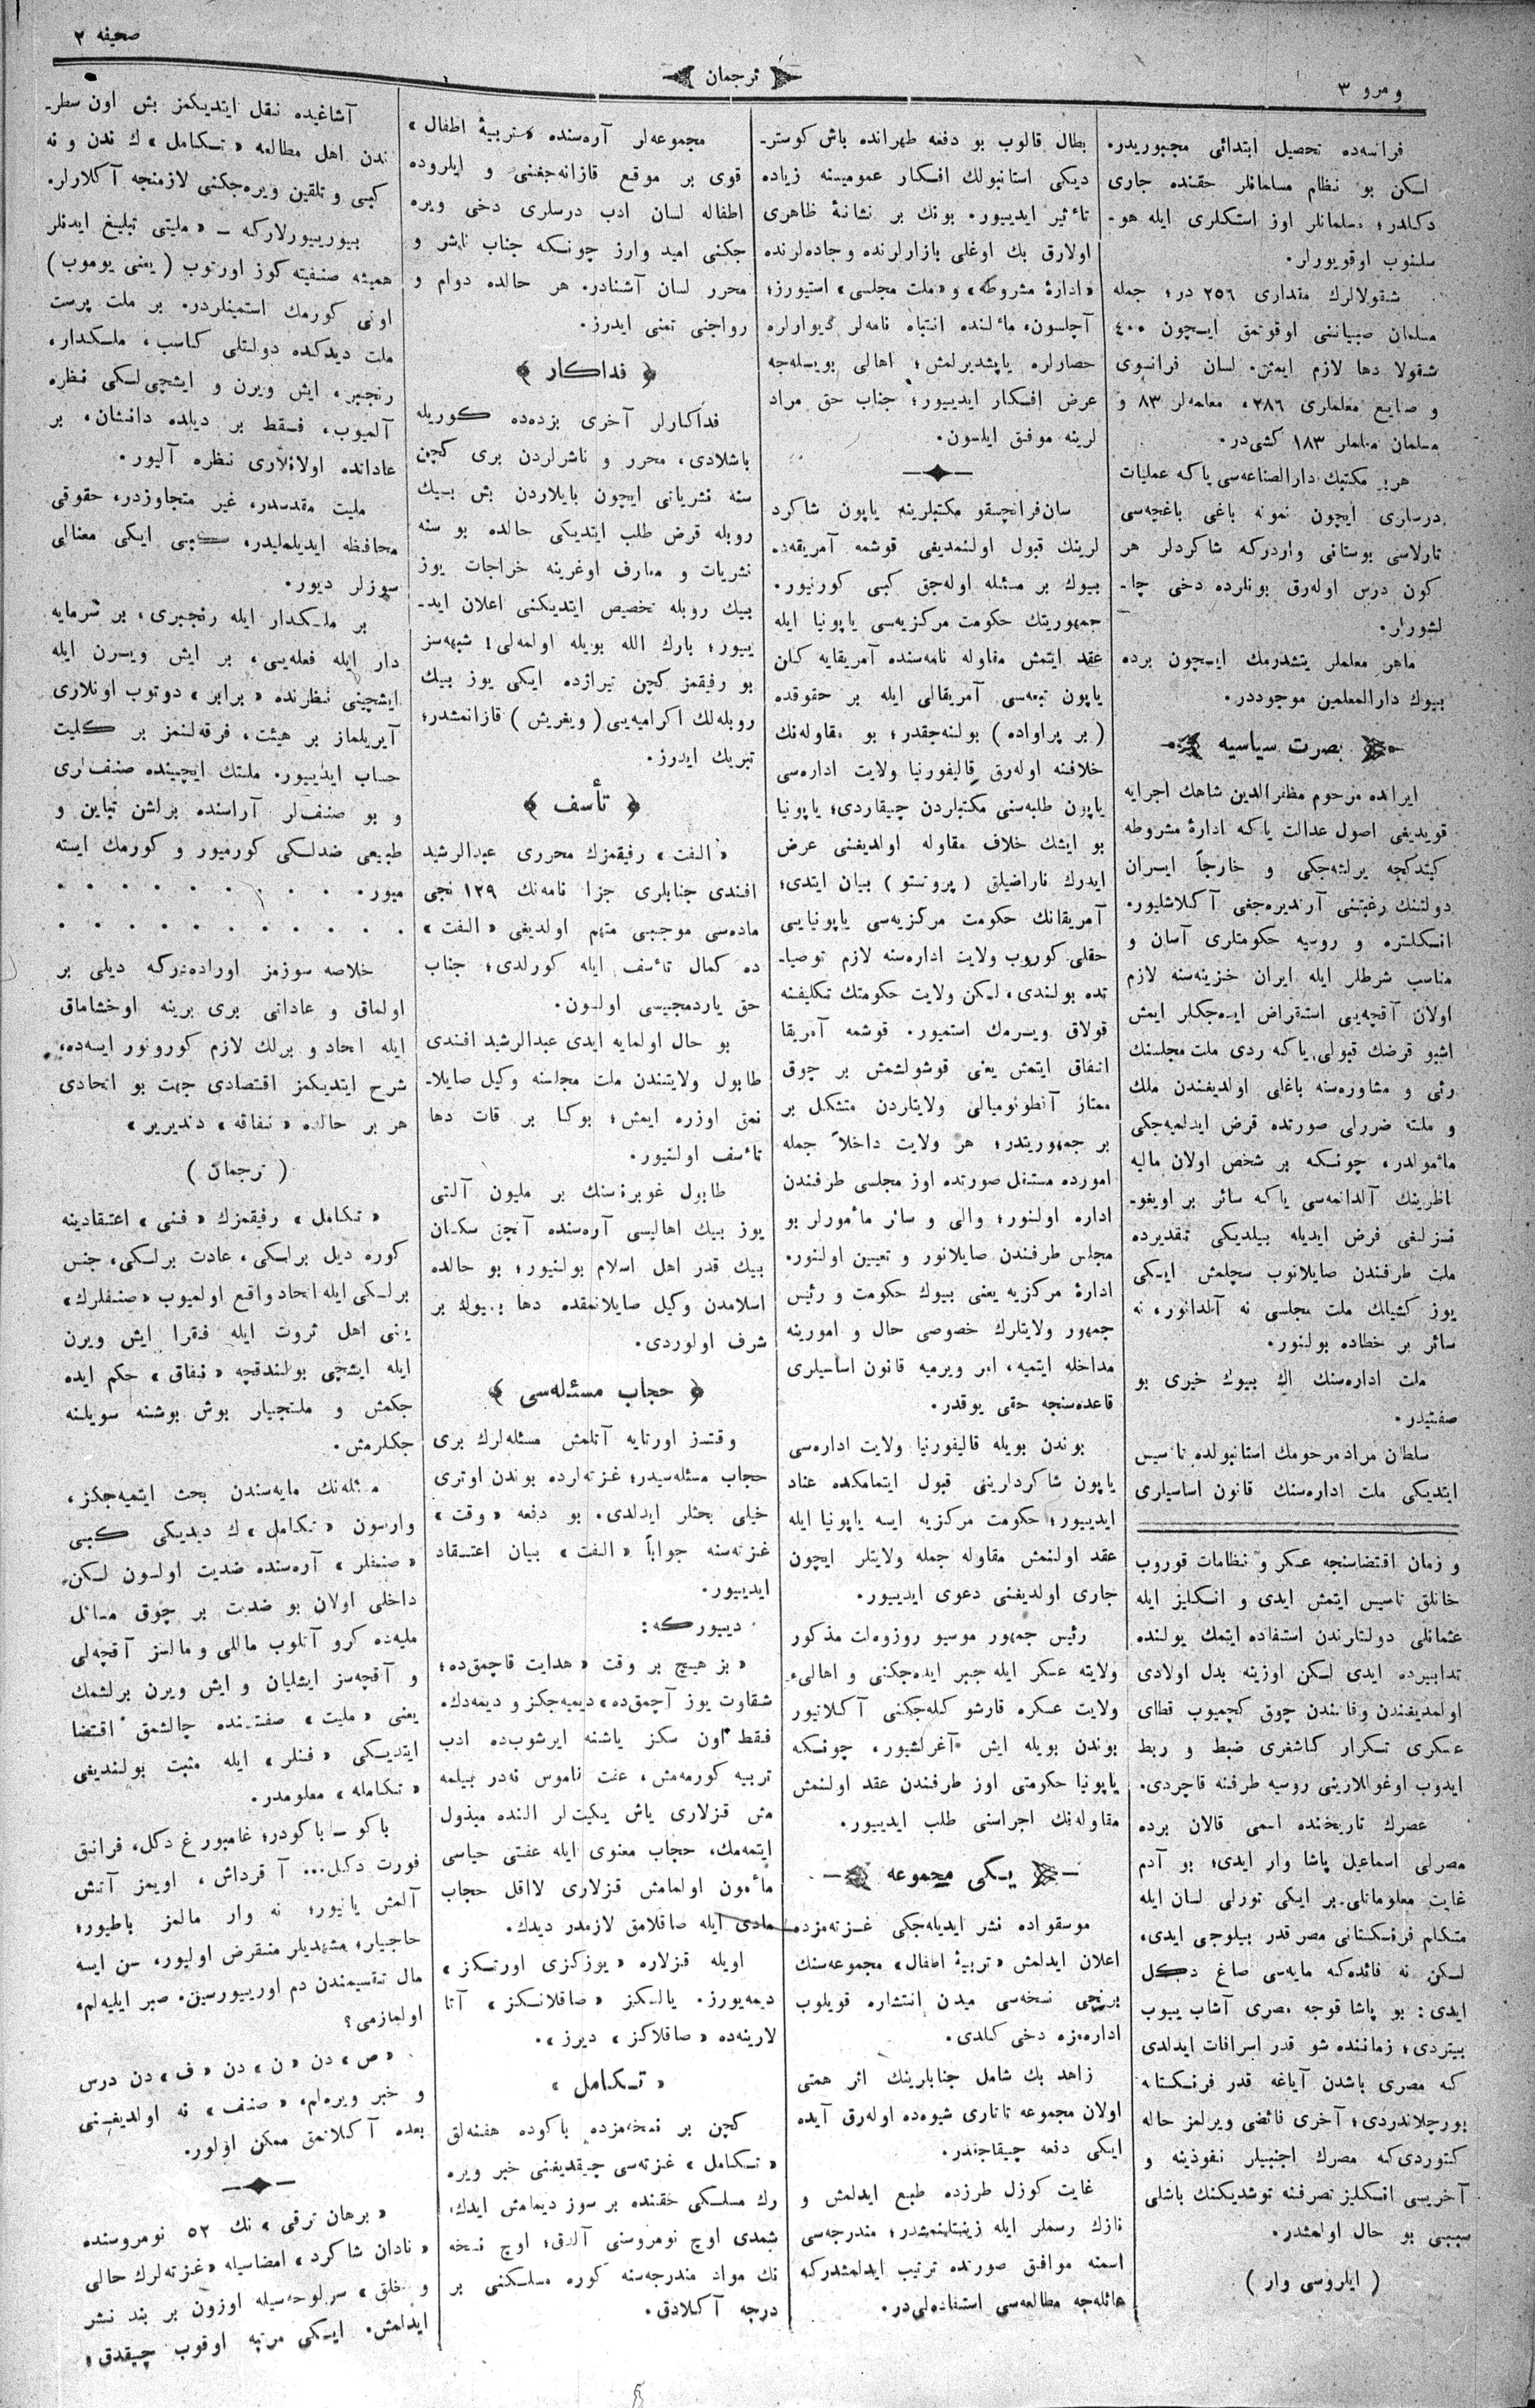 صحیفه ٢
ترجمان
ومرو ٣
فرانسه‌ده تحصیل ابتدائی مجبوریدر.
لسكن بو نظام مسلمانلر حقنده جاری
دكلدر؛ مسلمانلر اوز استكلری ایله هو-
سلنوب اوقویورلر.
شقولالرك مقداری ٢٥٦ در؛ جمله
مسلمان صبیاننی اوقوتمق ایچون ٤٠٠
شقولا دها لازم ایمش. لسان فرانسوی
و صنایع معلملری ٢٨٦، معلمه‌لر ٨٣ و
مسلمان معلملر ١٨٣ كشی‌در.
هربر مكتبك دارالصناعه‌سی یاكه عملیات
درسلری ایچون نمونه باغی باغچه‌سی
تارلاسی بوستانی واردركه شاكردلر هر
كون درس اوله‌رق بونلرده دخی چا-
لشورلر.
ماهر معلملر یتشدرمك ایچون برده
بیوك دارالمعلمین موجوددر.
بصرت سیاسیه
ایرانده مرحوم مظفرالدین شاهك اجرایه
قویدیغی اصول عدالت یاكه ادارۀ مشروطه
كیتدكجه یرلشه‌جكی و خارجاً ایران
دولتنك رغبتنی آرتدیره‌جغی آكلاشلیور.
انكلتره و روسیه حكومتلری آسان و
مناسب شرطلر ایله ایران خزینه‌سنه لازم
اولان آقچه‌یی استقراض ایده‌جكلر ایمش
اشبو قرضك قبولی یاكه ردی ملت مجلسنك
رئی و مشاوره‌سنه باغلی اولدیغندن ملك
و ملته ضررلی صورتده قرض ایدلمیه‌جكی
مأمولدر، چونكه بر شخص اولان مالیه
ناظرینك آلدانمه‌سی یاكه سائر بر اویغو-
نسزلغی فرض ایدیله بیلدیكی تقدیرده
ملت طرفندن صایلانوب سچلمش ایكی
یوز كشیلك ملت مجلسی نه آلدانور، نه
سائر بر خطاده بولنور.
ملت اداره‌سنك اك بیوك خیری بو
صفتیدر.
سلطان مراد مرحومك استانبولده تأسیس
ایتدیكی ملت اداره‌سنك قانون اساسیلری
و زمان اقتضاسنجه عسكر و نظامات قوروب
خانلق تاسیس ایتمش ایدی و انكلیز ایله
عثمانلی دولتلرندن استفاده ایتمك یولنده
تدابیرده ایدی لكن اوزینه بدل اولادی
اولمدیغندن وفاتندن چوق كچمیوب قطای
عسكری تكرار كاشغری ضبط و ربط
ایدوب اوغوللارینی روسیه طرفنه قاچردی.
عصرك تاریخنده اسمی قالان برده
مصرلی اسماعیل پاشا وار ایدی؛ بو آدم
غایت معلوماتلی بر ایكی تورلی لسان ایله
متكلم فرنكستانی مصر قدر بیلوجی ایدی،
لسكن نه فائده‌كه مایه‌سی صاغ دكل
ایدی: بو پاشا قوجه مصری آشاب ییوب
بیتردی؛ زماننده شو قدر اسرافات ایدلدی
كه مصری باشدن آیاغه قدر فرنكستانه
بورچلاندردی؛ آخری فائضی ویرلمز حاله
كتوردی‌كه مصرك اجنبیلر نفوذینه و
آخریسی انكلیز تصرفنه توشدیكنك باشلی
سببی بو حال اولمشدر.
( ایلروسی وار )
بطال قالوب بو دفعه طهرانده باش كوستر-
دیكی استانبولك افكار عمومیسنه زیاده
تأثیر ایدییور. بونك بر نشانۀ ظاهری
اولارق بك اوغلی بازارلرنده و جاده‌لرنده
«ادارۀ مشروطه» و «ملت مجلسی» استیورز؛
آچلسون، مألنده انتباه نامه‌لر دیوارلره
حصارلره یاپشدیرلمش؛ اهالی بویسله‌جه
عرض افكار ایدییور؛ جناب حق مراد
لرینه موفق ایلسون.
سان‌فرانچسقو مكتبلرینه یاپون شاكرد
لرینك قبول اولنمدیغی قوشمه آمریقه‌ده
بیوك بر مسئله اوله‌جق كبی كورنیور.
جمهوریتك حكومت مركزیه‌سی یاپونیا ایله
عقد ایتمش مقاوله نامه‌سنده آمریقایه كلن
یاپون تبعه‌سی آمریقالی ایله بر حقوقده
( بر پراواده ) بولنه‌جقدر؛ بو مقاوله‌نك
خلافنه اوله‌رق قالیفورنیا ولایت اداره‌سی
یاپون طلبه‌سنی مكتبلردن چیقاردی؛ یاپونیا
بو ایشك خلاف مقاوله اولدیغنی عرض
ایدرك ناراضیلق ( پروتستو ) بیان ایتدی؛
آمریقانك حكومت مركزیه‌سی یاپونیایی
حقلی كوروب ولایت اداره‌سنه لازم توصیا-
تده بولندی، لكن ولایت حكومتك تكلیفنه
قولاق ویرمك استمیور. قوشمه آمریقا
اتفاق ایتمش یعنی قوشولشمش بر چوق
ممتاز آنطونومیالی ولایتلردن متشكل بر
بر جمهوریتدر؛ هر ولایت داخلاً جمله
امورده مستقل صورتده اوز مجلسی طرفندن
اداره اولنور؛ والی و سائر مأمورلر بو
مجلس طرفندن صایلانور و تعیین اولنور.
ادارۀ مركزیه یعنی بیوك حكومت و رئیس
جمهور ولایتلرك خصوصی حال و امورینه
مداخله ایتمیه، امر ویرمیه قانون اساسیلری
قاعده‌سنجه حقی یوقدر.
بوندن بویله قالیفورنیا ولایت اداره‌سی
یاپون شاكردلرینی قبول ایتمامكده عناد
ایدییور؛ حكومت مركزیه ایسه یاپونیا ایله
عقد اولنمش مقاوله جمله ولایتلر ایچون
جاری اولدیغنی دعوی ایدییور.
رئیس جمهور موسیو روزوه‌لت مذكور
ولایته عسكر ایله جبر ایده‌جكنی و اهالیء
ولایت عسكره قارشو كله‌جكنی آكلانیور
بوندن بویله ایش آغرلشیور، چونكه
یاپونیا حكومتی اوز طرفندن عقد اولنمش
مقاوله‌نك اجراسنی طلب ایدییور.
یكی مجموعه
موسقواده نشر ایدیله‌جكی غزته‌مزده
اعلان ایدلمش «تربیۀ اطفال» مجموعه‌سنك
برنجی نسخه‌سی میدن انتشاره قویلوب
اداره‌مزه دخی كلدی.
زاهد بك شامل جنابلرینك اثر همتی
اولان مجموعه تاتاری شیوه‌ده اوله‌رق آیده
ایكی دفعه چیقاجقدر.
غایت كوزل طرزده طبع ایدلمش و
نازك رسملر ایله زینتلنمشدر؛ مندرجه‌سی
اسمنه موافق صورتده ترتیب ایدلمشدركه
عائله‌جه مطالعه‌سی استفاده‌لی‌در.
مجموعه‌لر آره‌سنده «تربیۀ اطفال»
قوی بر موقع قازانه‌جغنی و ایلروده
اطفاله لسان ادب درسلری دخی ویره
جكنی امید وارز چونكه جناب ناشر و
محرر لسان آشنادر. هر حالده دوام و
رواجنی تمنی ایدرز.
﴿ فداكار ﴾
فداكارلر آخری بزده‌ده كوریله
باشلادی، محرر و ناشرلردن بری كچن
سنه نشریاتی ایچون بایلاردن بش بیك
روبله قرض طلب ایتدیكی حالده بو سنه
نشریات و معارف اوغرینه خراجات یوز
بیك روبله تخصیص ایتدیكنی اعلان اید-
ییور؛ بارك الله بویله اولمه‌لی! شبهه‌سز
بو رفیقمز كچن تیراژده ایكی یوز بیك
روبله‌لك اكرامیه‌یی ( ویغریش ) قازانمشدر؛
تبریك ایدرز.
﴿ تأسف ﴾
«الفت» رفیقمزك محرری عبدالرشید
افندی جنابلری جزا نامه‌نك ١٢٩ نجی
ماده‌سی موجبی متهم اولدیغی «الفت»
ده كمال تأسف ایله كورلدی؛ جناب
حق یاردمجیسی اولسون.
بو حال اولمایه ایدی عبدالرشید افندی
طابول ولایتندن ملت مجلسنه وكیل صایلا-
نمق اوزره ایمش؛ بوكا بر قات دها
تأسف اولنیور.
طابول غوبرنه‌سنك بر ملیون آلتی
یوز بیك اهالیسی آره‌سنده آنجق سكسان
بیك قدر اهل اسلام بولنیور؛ بو حالده
اسلامدن وكیل صایلانمقده دها بیوك بر
شرف اولوردی.
﴿ حجاب مسئله‌سی ﴾
وقتسز اورتایه آتلمش مسئله‌لرك بری
حجاب مسئله‌سیدر؛ غزته‌لرده بوندن اوتری
خیلی بحثلر ایدلدی. بو دفعه «وقت»
غزته‌سنه جواباً «الفت» بیان اعتقاد
ایدییور.
دیبورکه:
«بز هیچ بر وقت «هدایت قاچمق‌ده؛
شقاوت یوز آچمق‌ده» دیمیه‌جكز و دیمه‌دك.
فقط اون سكز یاشنه ایرشوب‌ده ادب
تربیه كورمه‌مش، عفت ناموس نه‌در بیلمه
مش قزلاری یاش یكیت‌لر النده مبذول
ایتمه‌مك، حجاب معنوی ایله عفتی حیاسی
مأمون اولمامش قزلاری لااقل حجاب
مادی ایله صاقلامق لازمدر دیدك.
اویله قزلاره «یوزكزی اورتكز»
دیمه‌یورز. یالكز «صاقلانكز» آتا
لارینه‌ده «صاقلاكز» دیرز».
«تكامل»
كچن بر نسخه‌مزده باكوده هفته‌لق
«تكامل» غزته‌سی چیقدیغنی خبر ویره
رك مسلكی حقنده بر سوز دیمامش ایدك.
شمدی اوچ نومروسنی آلدق؛ اوچ نسخه
نك مواد مندرجه‌سنه كوره مسلكنی بر
درجه آكلادق.
آشاغیده نقل ایتدیكمز بش اون سطر-
ندن اهل مطالعه «تكامل»ك ندن و نه
كبی و تلقین ویره‌جكنی لازمنجه آكلارلر.
بیورییورلاركه ـ «ملیتی تبلیغ ایدنلر
همیشه صنفیته كوز اورتوب (یعنی یوموب)
اونی كورمك استمینلردر. بر ملت پرست
ملت دیدكده دولتلی كاسب، ملكدار،
رنجبر، ایش ویرن و ایشچی‌لكی نظره
آلمیوب، فقط بر دیلده دانشان، بر
عاداتده اولانلاری نظره آلیور.
ملیت مقدسدر، غیر متجاوزدر، حقوقی
محافظه ایدیلملیدر، كبی ایكی معنالی
سوزلر دیور.
بر ملكدار ایله رنجبری، بر سرمایه
دار ایله فعله‌یی، بر ایش ویرن ایله
ایشچینی نظرنده «برابر» دوتوب اونلاری
آیریلماز بر هیئت، فرقه‌لنمز بر كلیت
حساب ایدییور. ملتك ایچینده صنف‌لری
و بو صنف‌لر آراسنده یرلشن تباین و
طبیعی ضدلكی كورمیور و كورمك ایسته
میور. . . . . . . . . . .
. . . . . . . . . . . .
خلاصه سوزمز اوراده‌دركه دیلی بر
اولماق و عاداتی بری برینه اوخشاماق
ایله اتحاد و برلك لازم كورونور ایسه‌ده،
شرح ایتدیكمز اقتصادی جهت بو اتحادی
هر بر حالده «نفاقه» دندیریر»
( ترجمان )
«تكامل» رفیقمزك «فنی» اعتقادینه
كوره دیل برلسكی، عادت برلسكی، جنس
برلكی ایله اتحاد واقع اولمیوب «صنفلرك»
یعنی اهل ثروت ایله فقرا ایش ویرن
ایله ایشچی بولندقچه «نفاق» حكم ایده
جكمش و ملتجیلر بوش بوشنه سویلنه
جكلرمش.
مسئله‌نك مایه‌سندن بحث ایتمیه‌جكز،
وارسون «تكامل»ك دیدیكی كبی
«صنفلر» آره‌سنده ضدیت اولسون لكن
داخلی اولان بو ضدیت بر چوق مسائل
ملیه‌ده كرو آتلوب ماللی و مالسز آقچه‌لی
و آقچه‌سز ایشلیان و ایش ویرن برلشمك
یعنی «ملیت» صفتنده چالشمق اقتضا
ایتدیكی «فنلر» ایله مثبت بولندیغی
«تكامله» معلومدر.
باكو ـ باكودر؛ غامبورغ دكل، فرانق
فورت دكل... آ قرداش، اویمز آتش
آلمش یانیور؛ نه وار مالمز باطیور؛
حاجیلر، مشهدیلر منقرض اولیور، سن ایسه
مال تقسیمندن دم اورییورسین. صبر ایلیه‌لم،
اولمازمی؟
«ص» دن «ن» دن «ف» دن درس
و خبر ویره‌لم، «صنف» نه اولدیغنی
بعده آكلاتمق ممكن اولور.
«برهان ترقی» نك ٥٢ نومروسنده
«نادان شاكرد» امضاسیله «غزته‌لرك حالی
و خلق» سرلوحه‌سیله اوزون بر بند نشر
ایدلمش. ایكی مرتبه اوقوب چیقدق؛